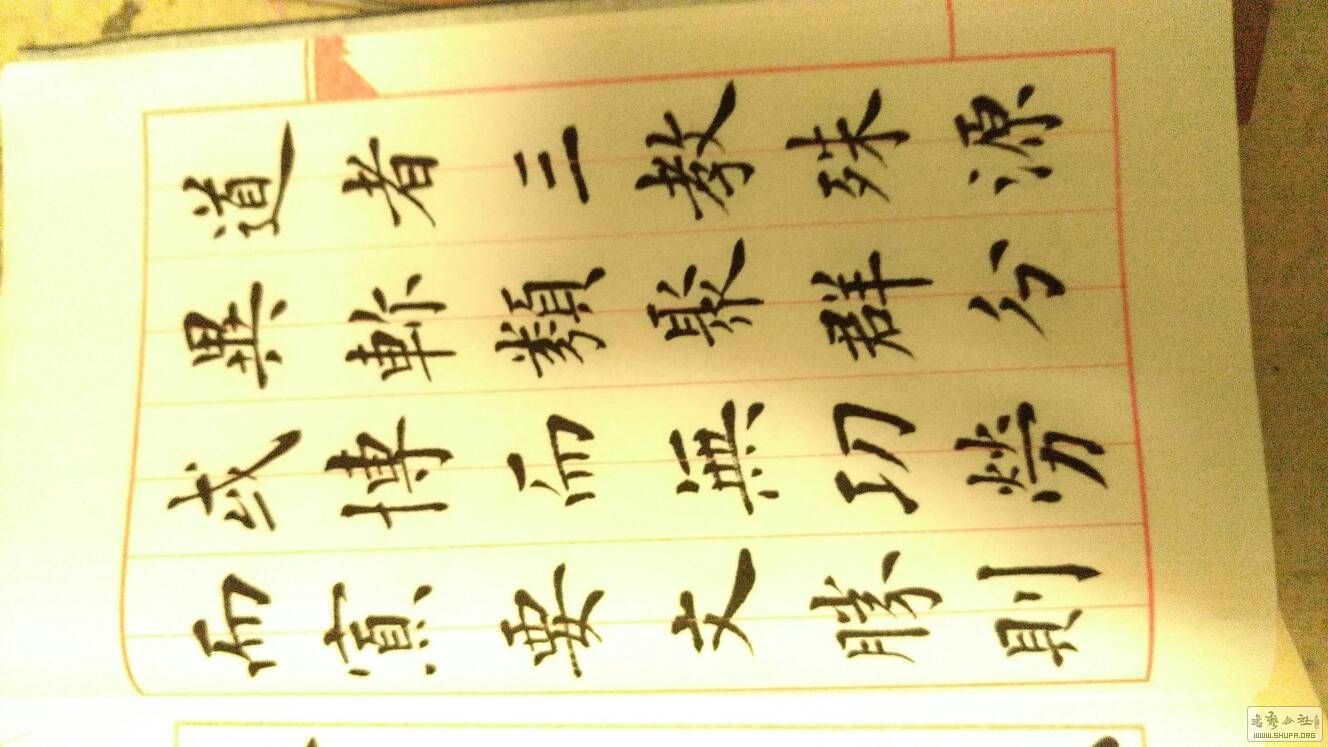 道者三教殊源
異軫類聚群分
或博而無功勞
而寡要文勝則
书艺公社
WWW.SHUFA.ORG